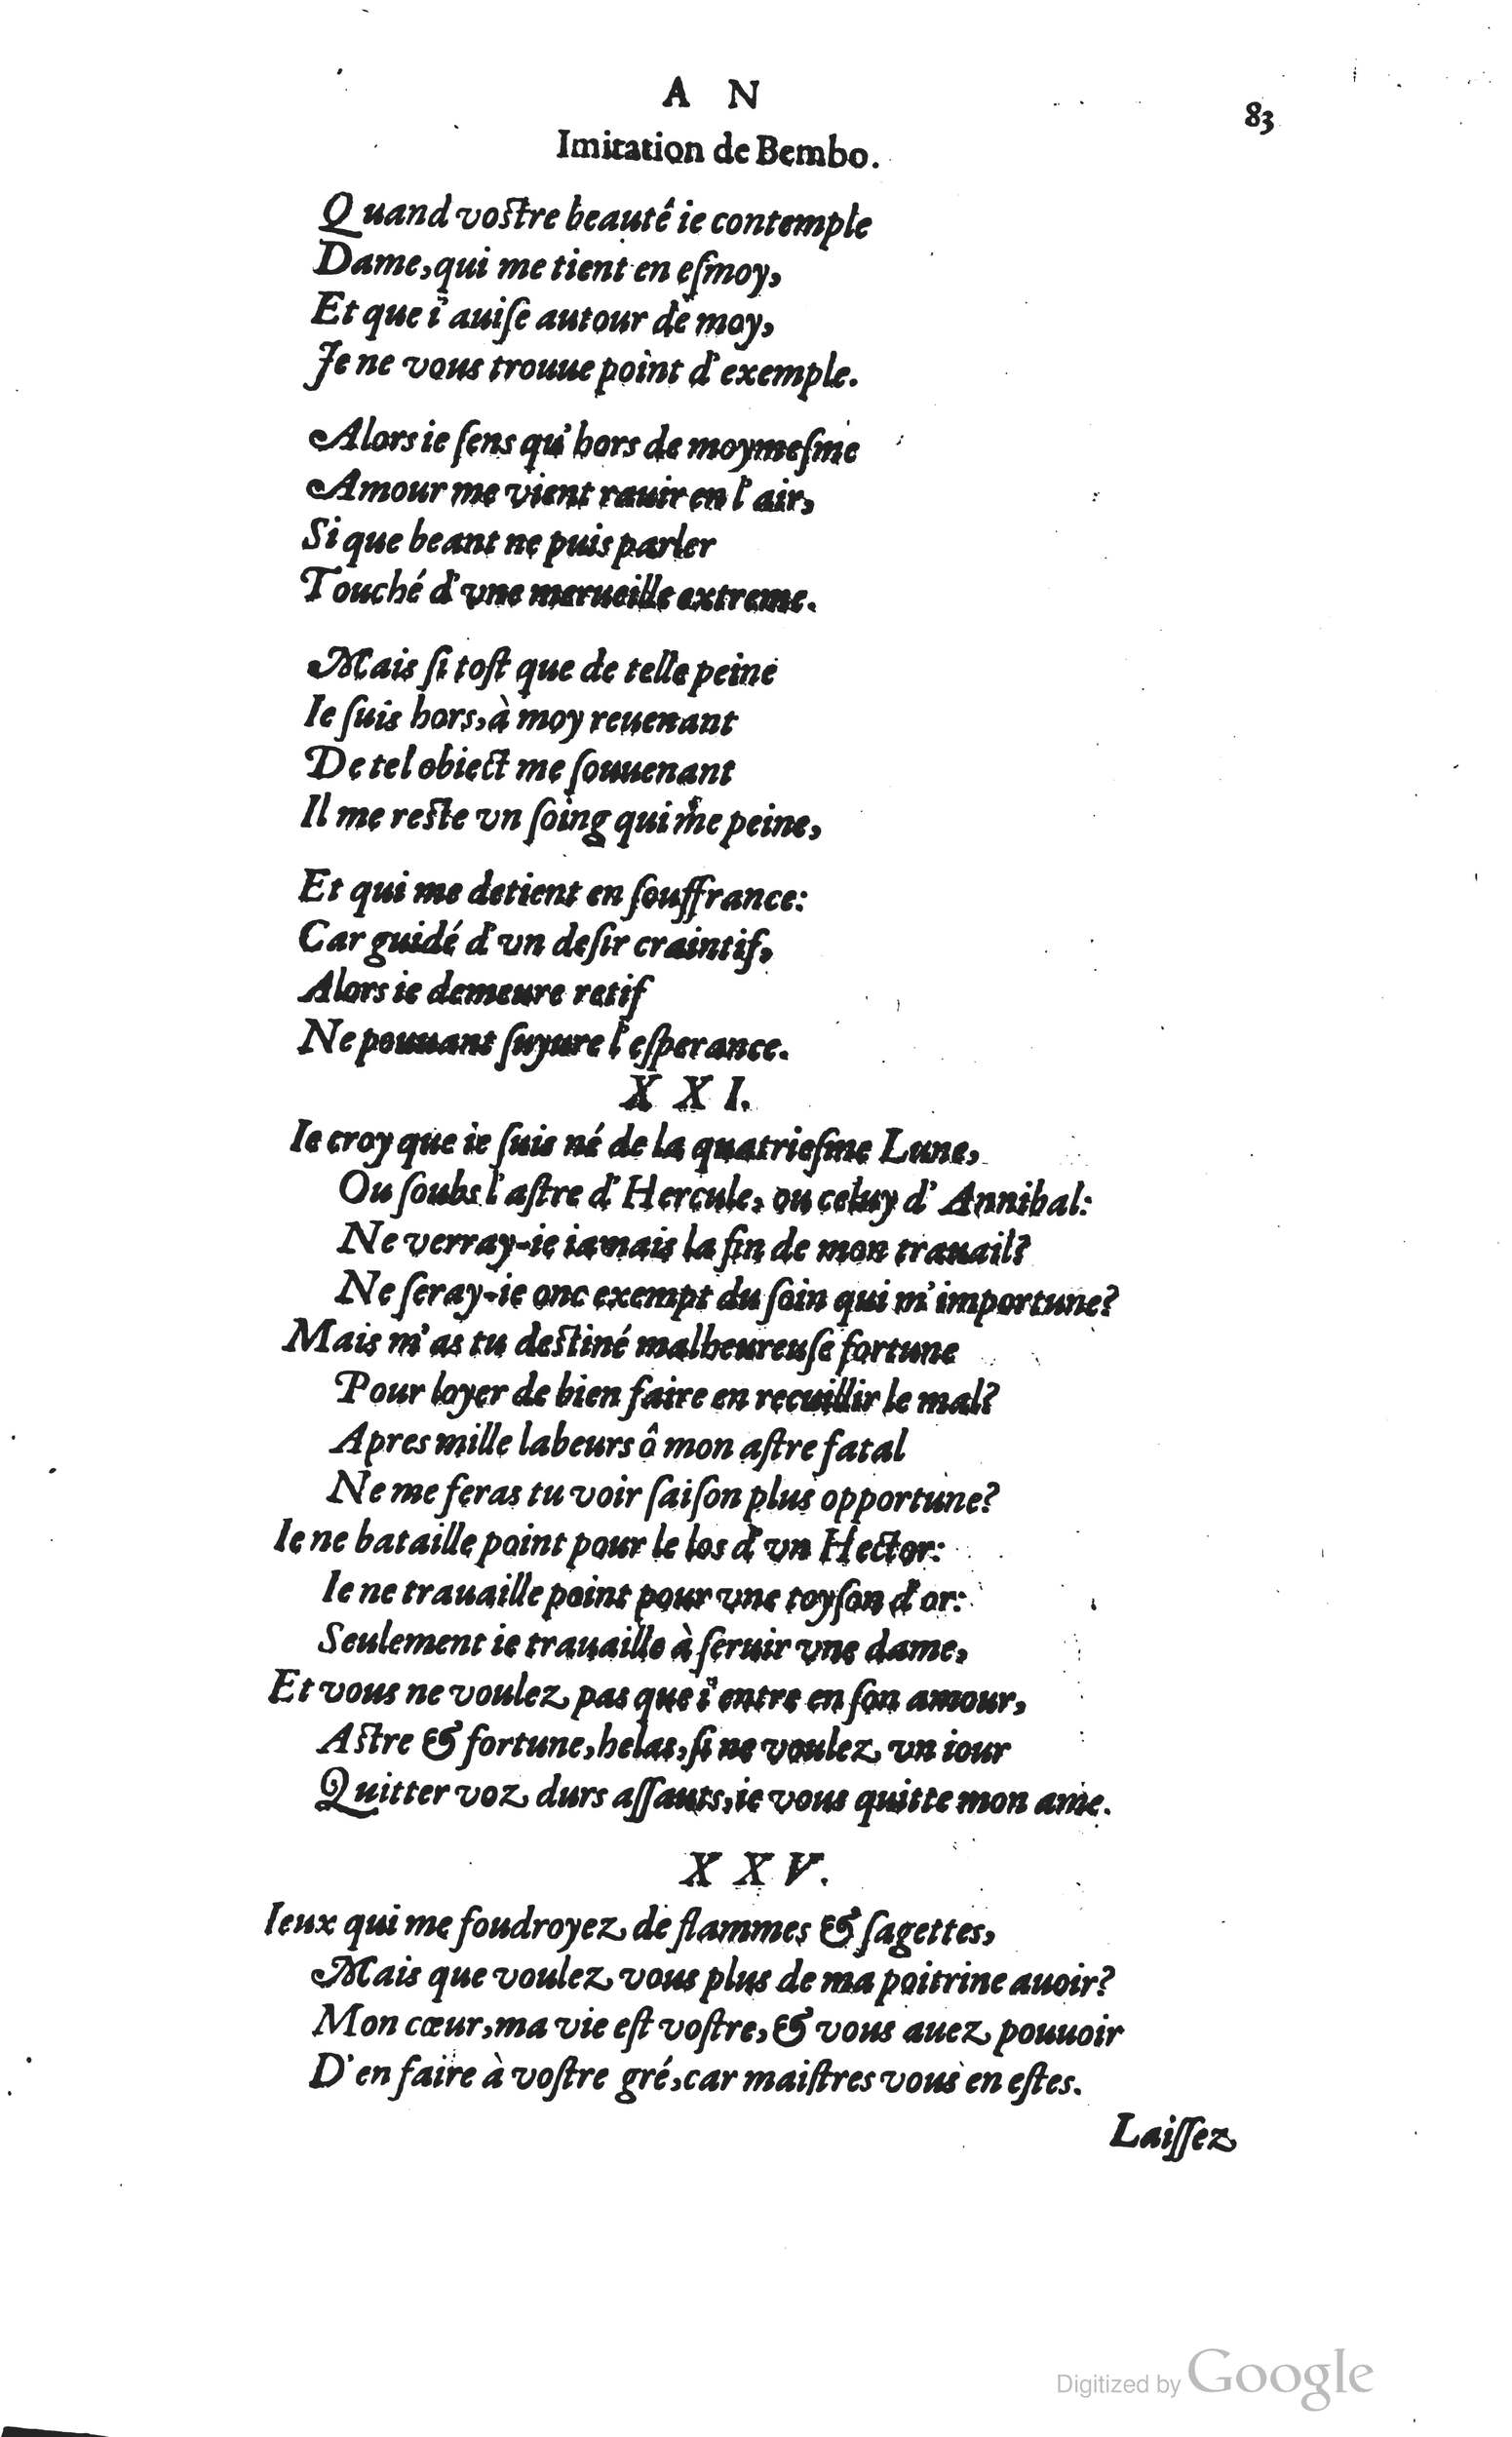 A N
83
Imitation de Bembo.
Quand voſtre beauté ie contemple
Dame, qui me tient en eſmoy,
Et que i'auiſe autour de moy,
Je ne vous trouue point d'exemple.
Alors ie ſens qu'hors de moymeſme
Amour me vient rauir en l'air,
Si que beant ne puis parler
Touché d'vne merueille extreme.
Mais ſi toſt que de telle peine
Ie ſuis hors, à moy reuenant
De tel obiect me ſouuenant
Il me reſte vn ſoing qui me peine,
Et qui me detient en ſouffrance:
Car guidé d'vn deſir craintif,
Alors ie demeure retif
Ne pouuant ſuyure l'eſperance.
X X I.
Ie croy que ie ſuis né de la quatrieſme Lune,
Ou ſoubs l'aſtre d'Hercule, ou celuy d'Annibal:
Ne verray-ie iamais la fin de mon trauail?
Ne ſeray-ie onc exempt du ſoin qui m'importune?
Mais m'as tu deſtiné malheureuſe fortune
Pour loyer de bien faire en recuillir le mal?
Apres mille labeurs ô mon aſtre fatal
Ne me feras tu voir ſaiſon plus opportune?
Ie ne bataille point pour le los d'vn Hector:
Ie ne trauaille point pour vne toyſon d'or:
Seulement ie trauaille à ſeruir vne dame,
Et vous ne voulez pas que i'entre en ſon amour,
Aſtre & fortune, helas, ſi ne voulez vn iour
Quitter voz durs aſſauts, ie vous quitte mon ame.
X X V.
Ieux qui me foudroyez de flammes & ſagettes,
Mais que voulez vous plus de ma poitrine auoir?
Mon cœur, ma vie eſt voſtre, & vous auez pouuoir
D'en faire à voſtre gré, car maiſtres vous en eſtes.
Laiſſez
Digitized by Google